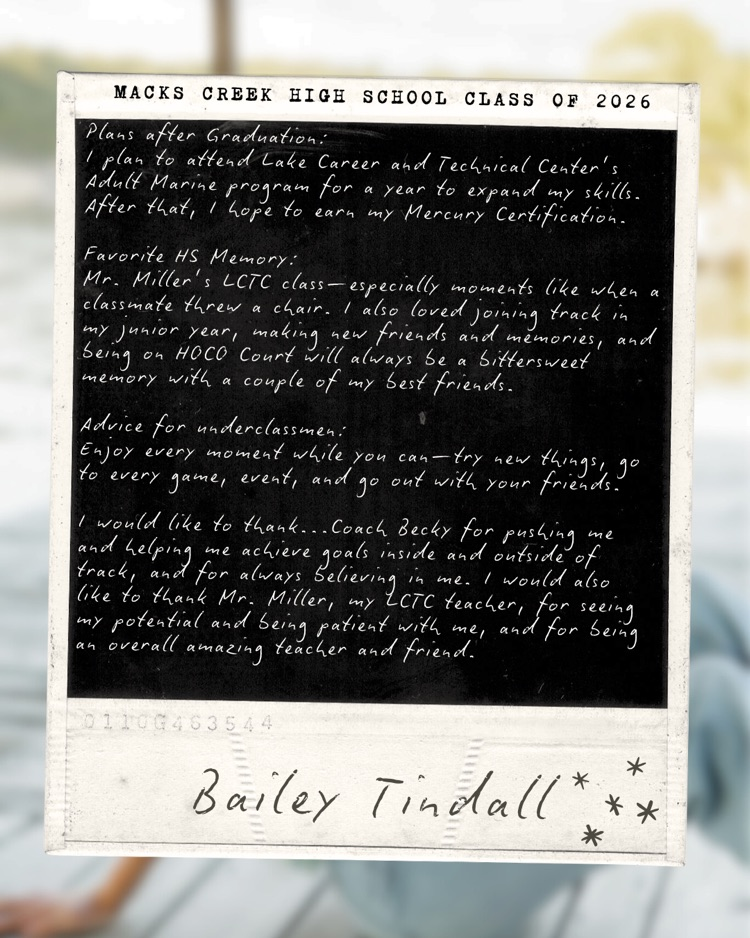 MACKS CREEK HIGH SCHOOL CLASS OF 2026
Plans after Graduation:
I plan to attend Lake Career and Technical Center's
Adult Marine program for a year to expand my skills.
After that, I hope to earn my Mercury Certification.
Favorite HS Memory:
Mr. Miller's LCTC class—especially moments like when a
classmate threw a chair. I also loved joining track in
my junior year, making new friends and memories, and
being on HOCO Court will always be a bittersweet
memory with a couple of my best friends.
Advice for underclassmen:
Enjoy every moment while you can—try new things, go
to every game, event, and go out with your friends.
I would like to thank...Coach Becky for pushing me
and helping me achieve goals inside and outside of
track, and for always believing in me. I would also
like to thank Mr. Miller, my LCTC teacher, for seeing
my potential and being patient with me, and for being
an overall amazing teacher and friend.
0110G463544
Bailey Tindall